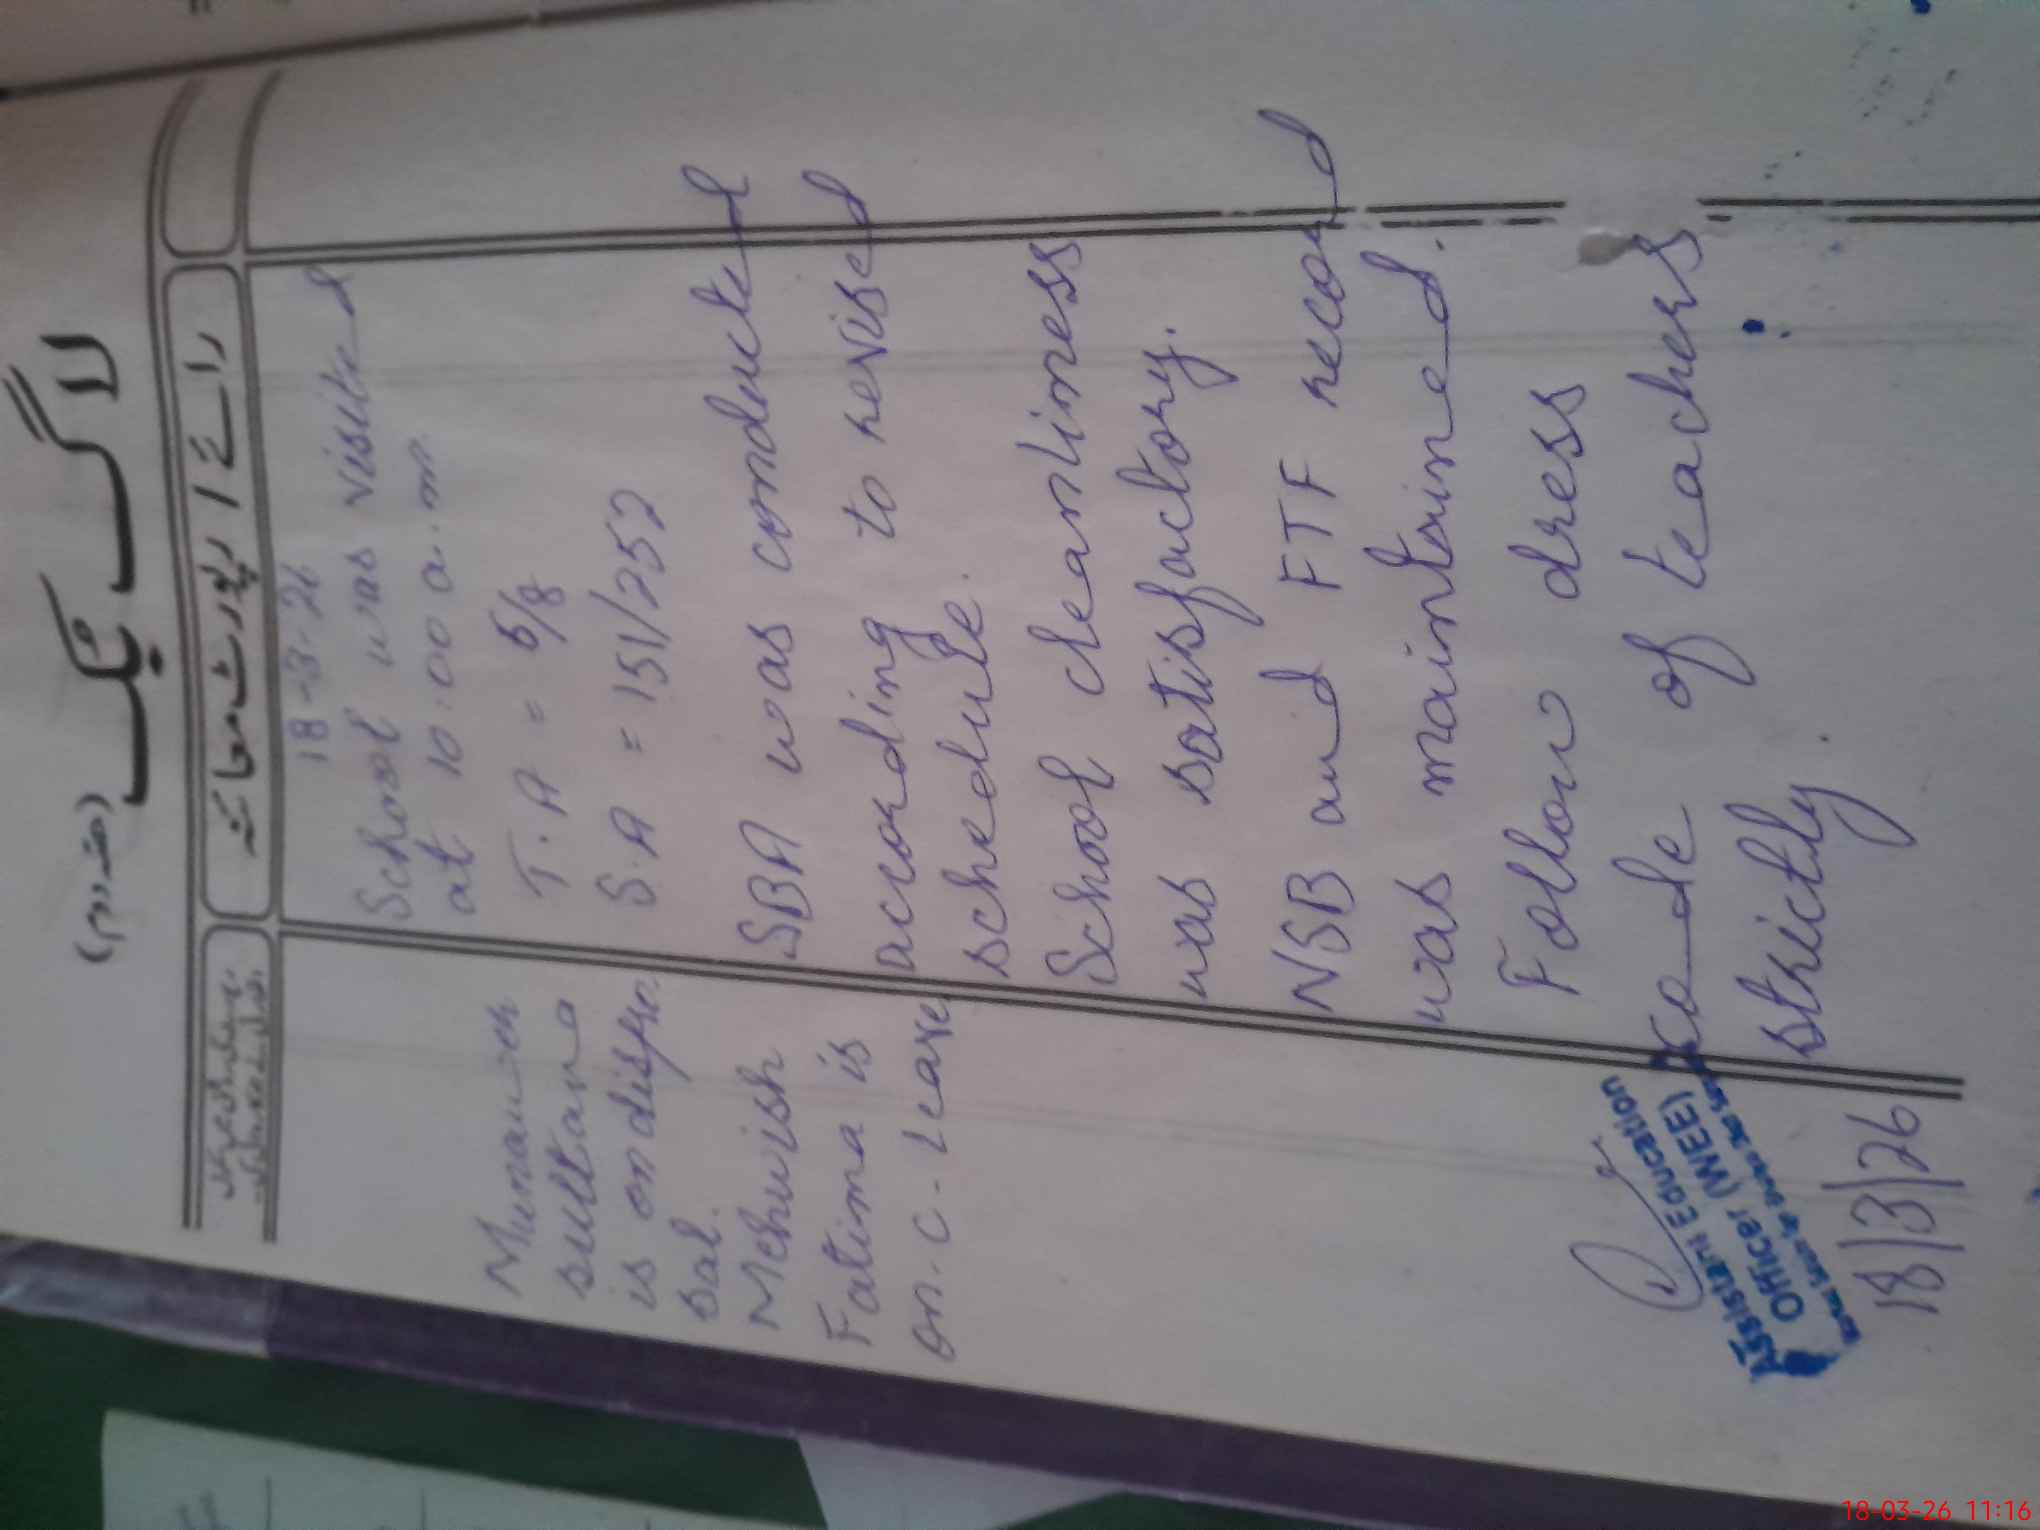 لاگ بک (حصہ دوم)
رائے / رپورٹ معائنہ
18-3-26
School was visited
at 10:00 a.m
T.A = 6/8
S.A = 151/252
SBA was conducted
according to revised
schedule.
School cleanliness
was satisfactory.
NSB and FTF record
was maintained.
Follow dress
code of teachers
strictly.
sultana
is on dispo
sal.
Mehwish
Fatima is
on C-leave
Assistant Education
Officer (WEE)
18/3/26
18-03-26 11:16